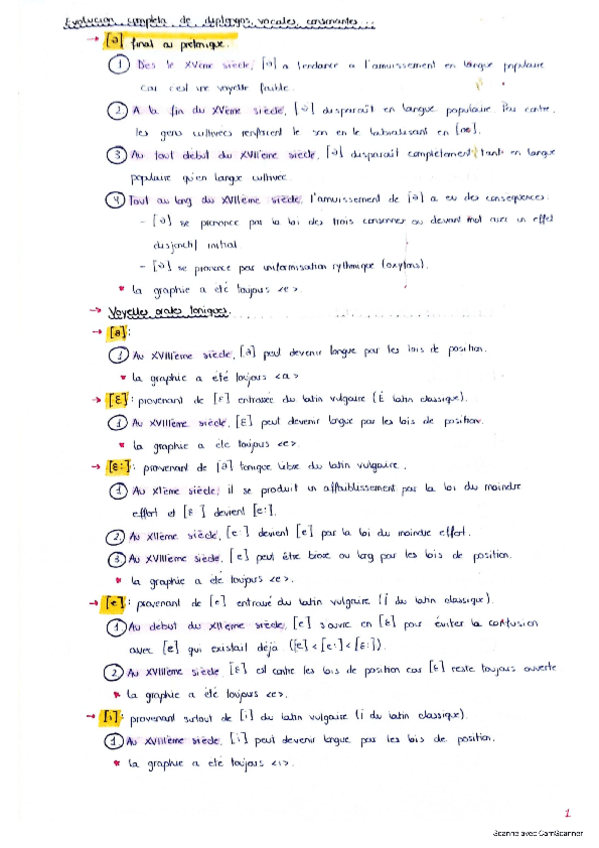 Evolución completa de diptongos, vocales, consonantes...
→ [ə] final ou prétonique.
① Dès le XVème siècle, [ə] a tendance a l'amuïssement en langue populaire
car c'est une voyelle faible.
② A la fin du XVème siècle, [ə] disparaît en langue populaire. Par contre,
les gens cultivées renforcent le son en le labialisant en [œ].
③ Au tout début du XVIIème siècle, [ə] disparait complètement tant en langue
populaire qu'en langue cultivée.
④ Tout au long du XVIIème siècle, l'amuïssement de [ə] a eu des conséquences:
- [ə] se prononce par la loi des trois consonnes ou devant mot avec un effet
disjonctif initial.
- [ə] se prononce par uniformisation rythmique (oxytons).
* la graphie a été toujours <e>.
→ Voyelles orales toniques.
→ [a]:
① Au XVIIIème siècle, [a] peut devenir longue par les lois de position.
* la graphie a été toujours <a>
→ [ɛ]: provenant de [ɛ] entravée du latin vulgaire (É latin classique).
① Au XVIIIème siècle, [ɛ] peut devenir longue par les lois de position.
* la graphie a été toujours <e>.
→ [ɛ:]: provenant de [a] tonique libre du latin vulgaire.
① Au XIème siècle, il se produit un affaiblissement par la loi du moindre
effort et [ɛ ] devient [e:].
② Au XIIème siècle, [e:] devient [e] par la loi du moindre effort.
③ Au XVIIIème siècle, [e] peut être brève ou long par les lois de position.
* la graphie a été toujours <e>.
→ [e]: provenant de [e] entravé du latin vulgaire (ĭ du latin classique).
① Au début du XIIème siècle, [e] s'ouvre en [ɛ] pour éviter la confusion
avec [e] qui existait déjà ([e] < [e:] < [ɛ:]).
② Au XVIIIème siècle, [ɛ] est contre les lois de position car [ɛ] reste toujours ouverte.
* la graphie a été toujours <e>.
→ [i]: provenant surtout de [i] du latin vulgaire (i du latin classique).
① Au XVIIIème siècle, [i] peut devenir longue par les lois de position.
* la graphie a été toujours <i>.
1
Scanné avec CamScanner